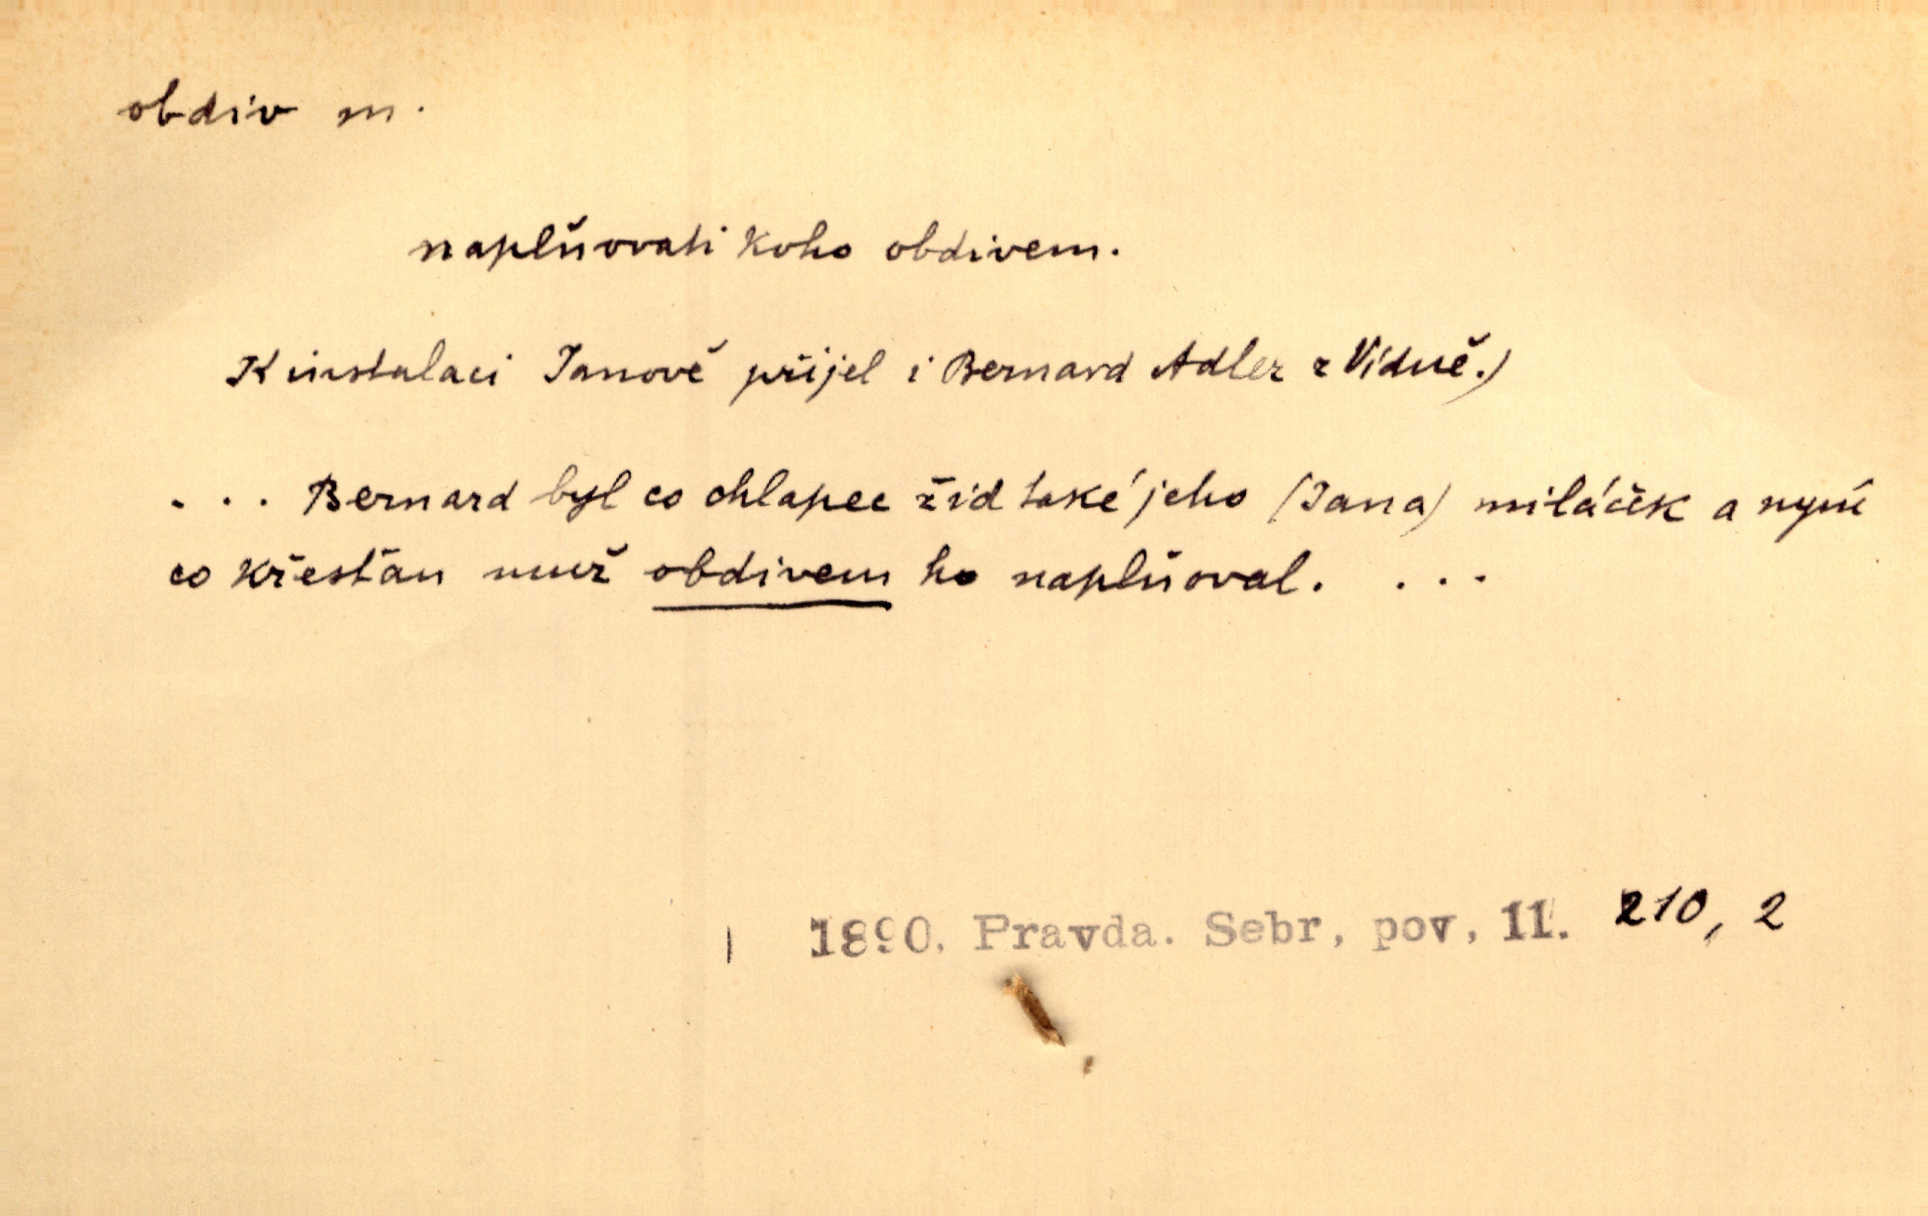 obdiv m.
naplňovati koho obdivem.
K instalaci Janově přijel i Bernard Adler z Vídně.)
... Bernard byl co chlapec žid také jeho (Jana) miláček a nyní
co křesťan muž obdivem ho naplňoval. ...
1890. Pravda. Sebr, pov, 11. 210, 2